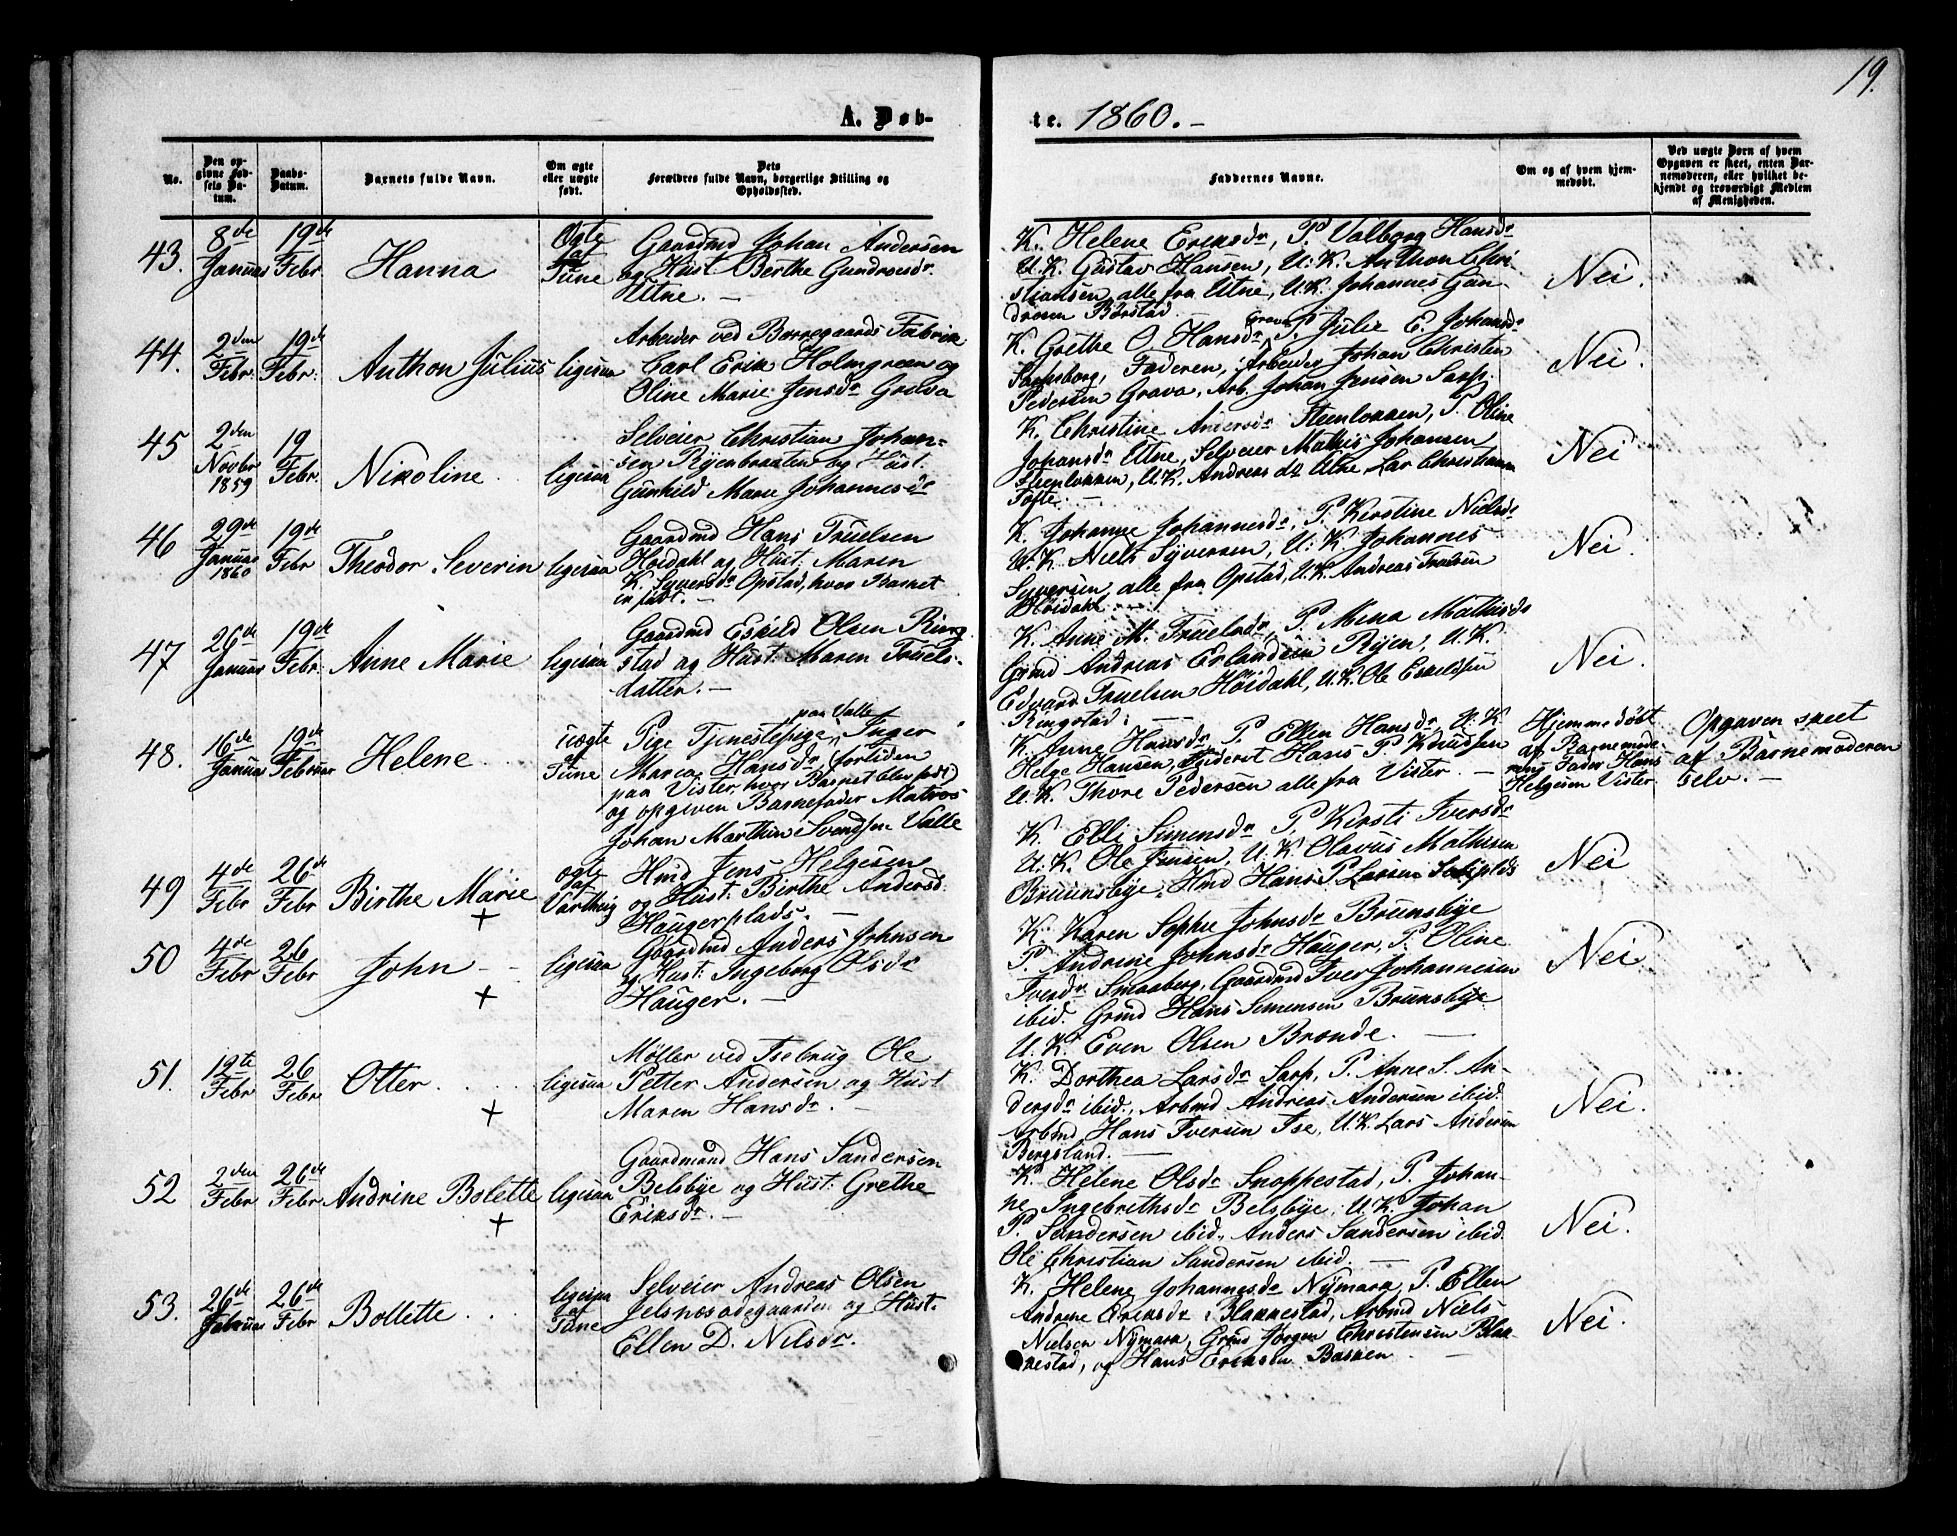 19.
A. Døb-
te. 1860. -
No.
Den op-
givne Fød-
sels Da-
tum.
Daabs-
Datum.
Barnets fulde Navn.
Om ægte
eller uægte
født.
Dets
Forældres fulde Navn, borgerlige Stilling og
Opholdssted.
Faddernes Navne.
Om og af hvem hjem-
medøbt.
Ved uægte Børn af hvem
Opgaven er skeet, enten Bar-
nemoderen, eller hvilket be-
kjendt og troværdigt Medlem
af Menigheden.
43.
8de
Januar
19de
Febr
Hanna
Ægte
af
Tune
Gaardmd Johan Andersen
og Hust. Berthe Gundrosdr
Utne. -
K. Helene Eriksdr, P. Valborg Hansdr
U.K. Gustav Hansen, U.K. Anthon Chri-
stiansen alle fra Utne, U.K. Johannes Gun-
drosen Borstad.
Nei.
44.
2den
Febr.
19de
Febr.
Anthon Julius
ligesaa
Arbeider ved Borregaards Fabrik
Carl Erik Holmgreen og
Oline Marie Jensdr Grava
K. Grethe O. Hansdr Grava, P. Julie E. Johansdr
Sarpsborg, Faderen, Arbeider Johan Christen
Pedersen Grava, Arb. Johan Jensen Sarp.
Nei.
45
2den
Novbr
1859
19
Febr.
Nikoline
ligesaa
Selveier Christian Johan-
sen Ryenbraaten og Hust.
Gunhild Marie Johannesdr
K. Christine Andersdr Steenløkken, P. Oline
Johansdr Utne, Selveier Mathis Johansen
Steenløkken, U.K. Andreas Utne Lar Christiansen
Tofte. -
Nei
46
29de
Januar
1860
19de
Febr
Theodor Severin
ligesaa
Gaardmd Hans Truelsen
Høidahl og Hust: Maren
K. Syversdr Opstad, hvor Barnet
er født. -
K. Johanne Johannesdr, P. Kirstine Nielsdr
U.K. Niels Syversen, U.K. Johannes
Syversen, alle fra Opstad, U.K. Andreas Truelsen
Høidahl
Nei.
47
26de
Januar
19de
Febr.
Anne Marie
ligesaa
Gaardmd Eskild Olsen Ring-
stad og Hust: Maren Truels-
datter. -
K. Anne M. Truelsdr, P. Mina Mathisdr
Grmd Andreas Erlandsen Ryen, U.K.
Edvard Truelsen Høidahl, U.K. Ole Eskildsen
Ringstad.
Nei.
48.
16de
Januar
19de
Februar
Helene
uægte
af
Tune
Pige Tjenestepige paa Valle Inger
Maria Hansdr, fortiden
paa Vister, hvor Barnet blev født
og opgiven Barnefader Matros
Johan Marthin Svendsen Valle
K. Anne Hansdr P. Ellen Hansdr U.K.
Helge Hansen, Hans P. Knudsen
U.K. Thore Pedersen alle fra Vister. -
Hjemmedøbt
af Barnemode-
rens Fader Hans
Helgesen Vister
Opgaven skeet
af Barnemoderen
selv. -
49
4de
Febr
26de
Febr
Birthe Marie
+
ægte
af
Varteig
Hmd Jens Helgesen
og Hust: Birthe Andersd.
Haugerplads. -
K. Elli Simensdr P. Kirsti Iversdr
U.K. Ole Jensen, U.K. Olavus Mathisen
Bruunsbye, Hmd Hans P. Larsen
Nei
50
4de
Febr
26
Febr
John - -
+
ligesaa
Gaardmd Anders Johnsen
og Hust: Ingeborg Olsdr
Hauger. -
K. Karen Sophie Johnsdr Bruunsbye
P. Andrine Johnsdr Hauger, P. Oline
Iversdr Smaaberg, Gaardmd Iver Johannesen
ibid. Grmd Hans Simensen Bruunsbye
U.K. Even Olsen Brønde. -
Nei
51.
12te
Febr
26
Febr
Otter . . .
+
ligesaa
Møller ved Isebrug Ole
Petter Andersen og Hust
Maren Hansdr. -
K. Dorthea Larsdr Sarp, P. Anne S. An-
dersdr ibid., Arbmd Andreas Andersen ibid.
Arbmd Hans Iversen Ise, U.K. Lars Andersen
Bergsland. -
Nei.
52
2den
Febr
26de
Febr
Andrine Bolette
+
ligesaa
Gaardmand Hans Sandersen
Belsbye og Hust: Grethe
Eriksdr. -
K. Helene Olsdr Snoppestad, P. Johan-
ne Ingebrethsdr Belsbye, U.K. Johan
P. Sandersen ibid., Anders Sandersen ibid.
Ole Christian Sandersen ibid. -
Nei.
53.
26de
Januar
26de
Febr
Bollette . .
ligesaa
af
Tune
Selveier Andreas Olsen
Jelsnæsødegaarden og Hust.
Ellen D. Nilsdr.
K. Helene Johannesdr Nymark, P. Ellen
Andrine Eriksdr Blakkestad, Arbmd Niels
Nielsen Nymark, Grmd Jørgen Christensen Blak-
kestad, og Hans Eriksen Bakken -
Nei.